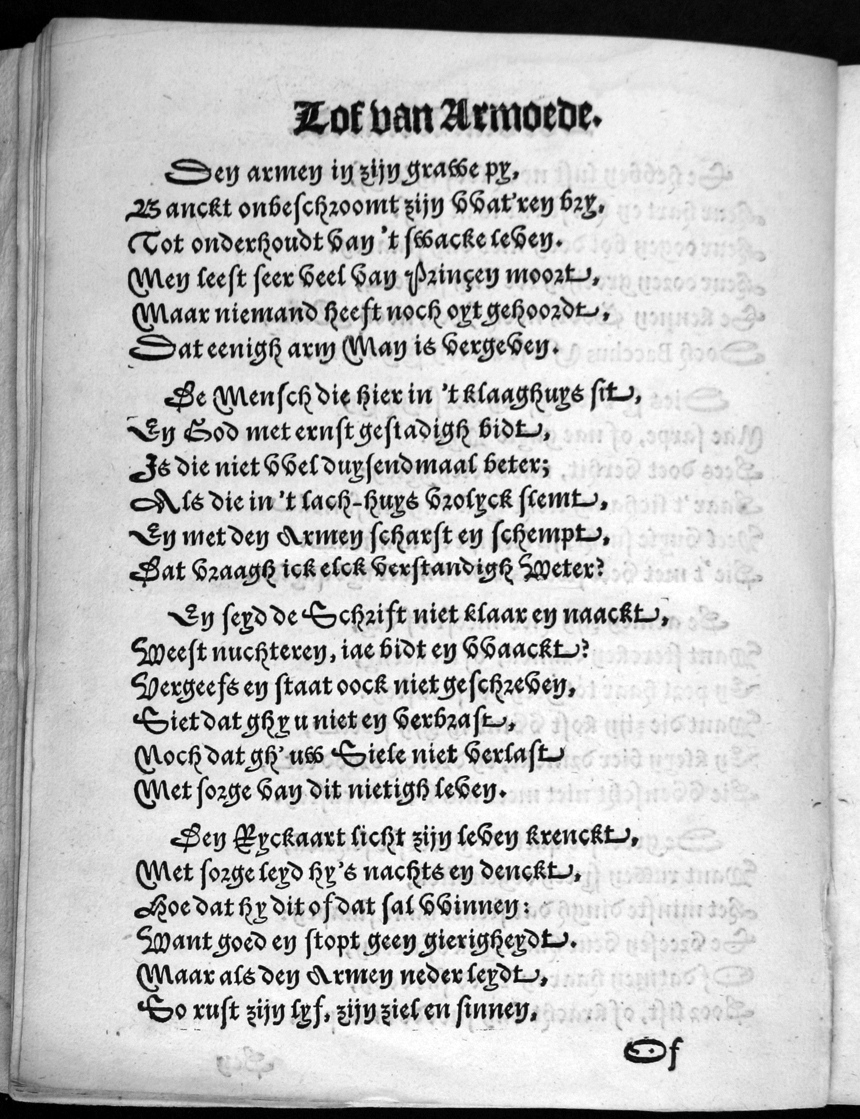 Lof van Armoede.
Den armen in zijn grauwe py,
Banckt onbeschroomt zijn vvat'ren bry,
Tot onderhoudt van 't swacke leven.
Men leest seer veel van Prinçen moort,
Maar niemand heeft noch oyt gehoordt,
Dat eenigh arm Man is vergeven.
De Mensch die hier in 't klaaghuys sit,
En God met ernst gestadigh bidt,
Is die niet vvel duysendmaal beter;
Als die in 't lach-huys vrolyck slemt,
En met den Armen scharst en schempt,
Dat vraagh ick elck verstandigh Weter?
En seyd de Schrift niet klaar en naackt,
Weest nuchteren, iae bidt en vvaackt?
Vergeefs en staat oock niet geschreven,
Siet dat ghy u niet en verbrast,
Noch dat gh' uw Siele niet verlast
Met sorge van dit nietigh leven.
Den Ryckaart licht zijn leven krenckt,
Met sorge leyd hy's nachts en denckt,
Hoe dat hy dit of dat sal vvinnen:
Want goed en stopt geen gierigheydt.
Maar als den Armen neder leydt,
So rust zijn lyf, zijn ziel en sinnen,
Of